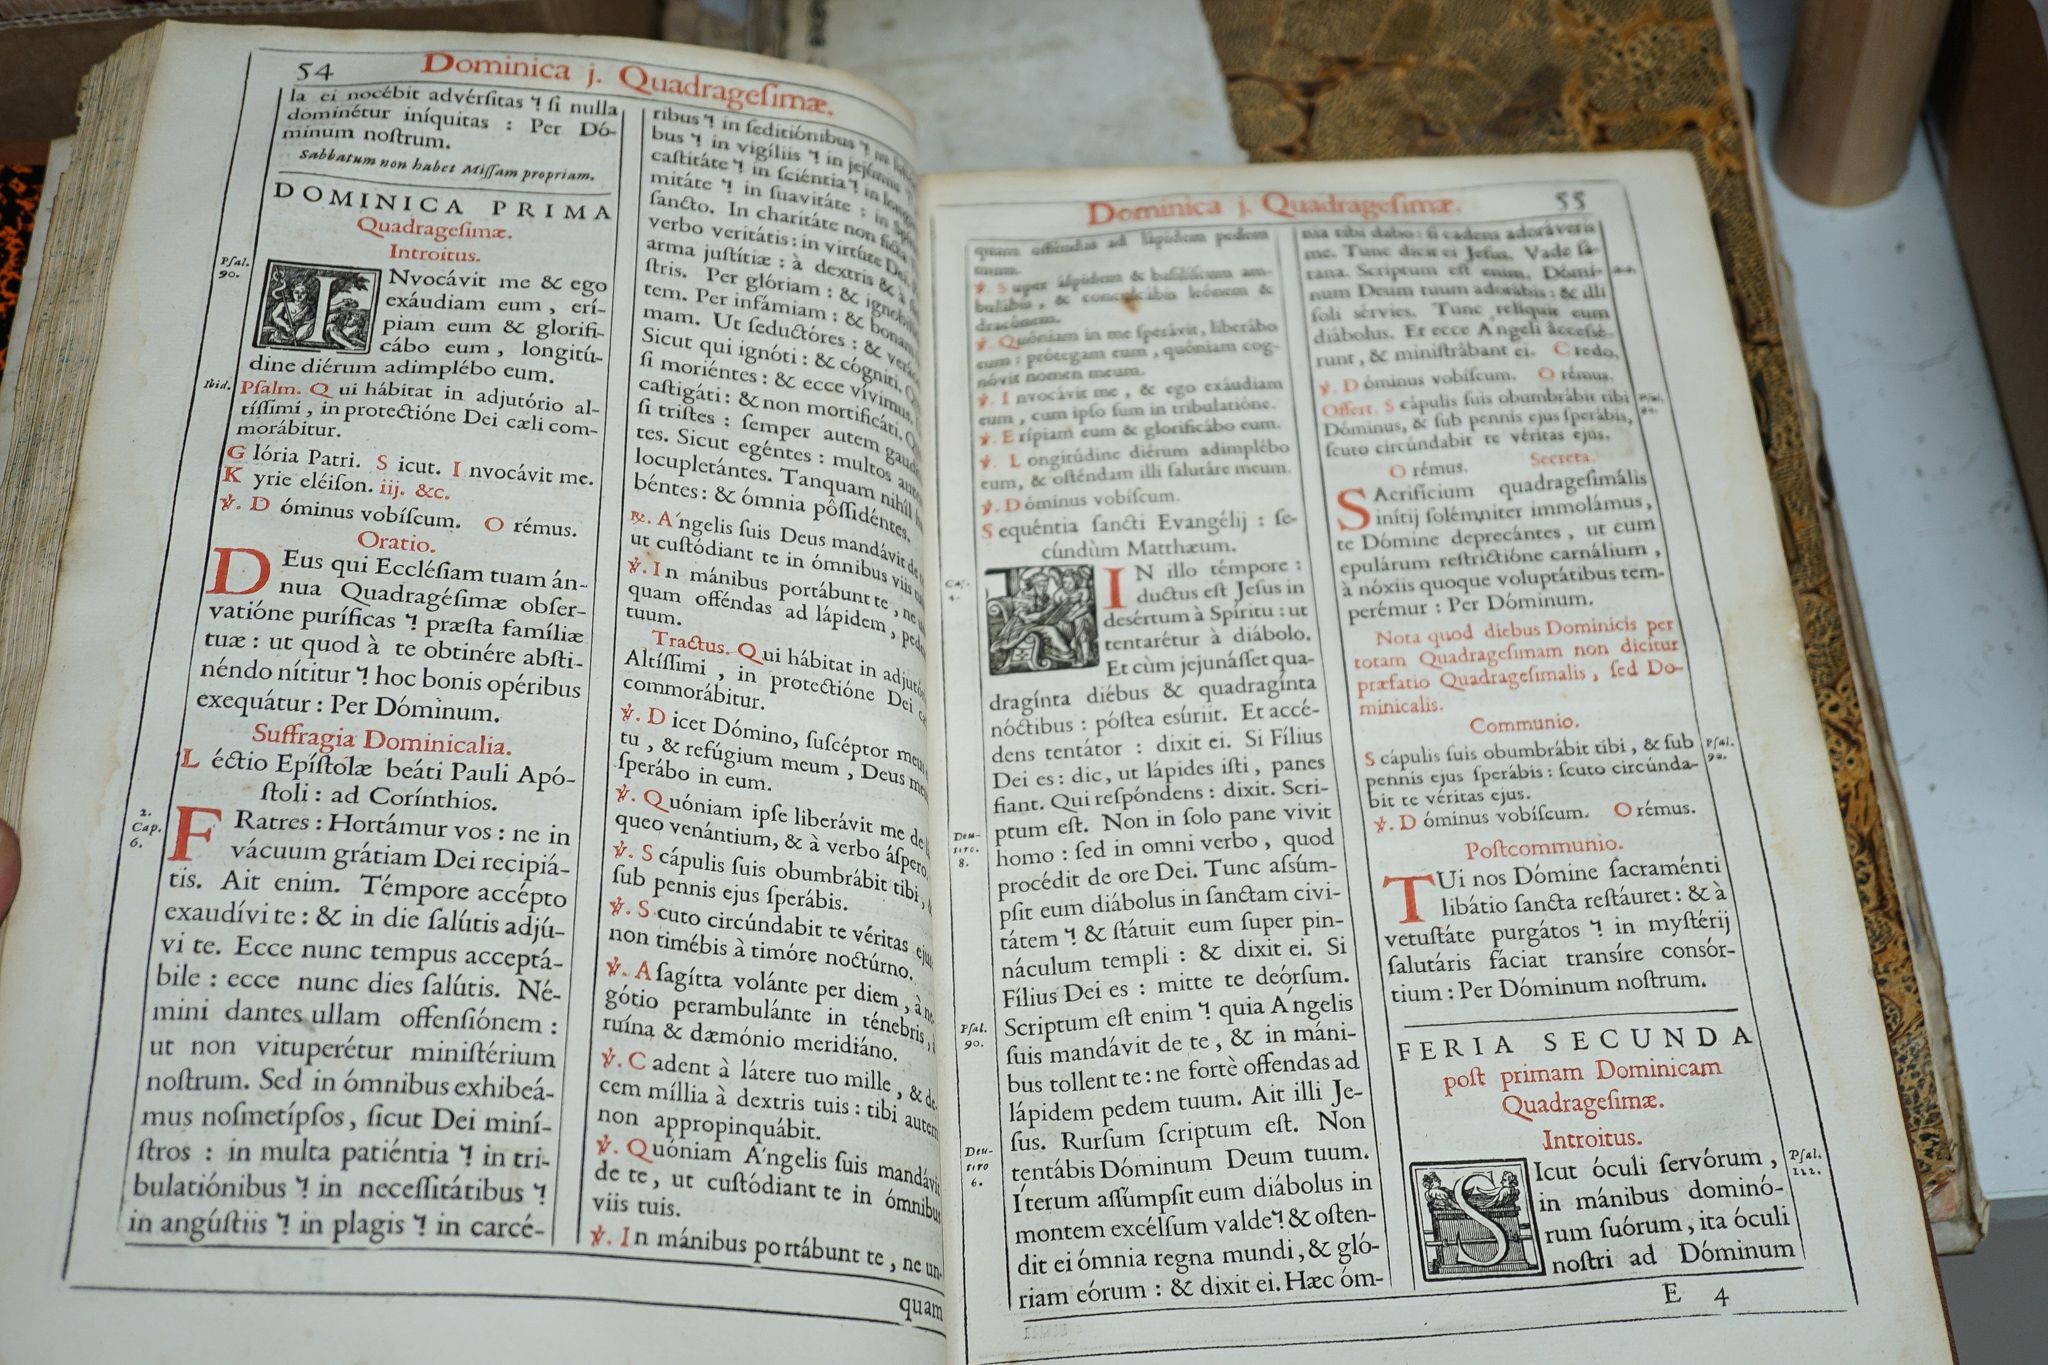 54
Dominica j. Quadrageſimæ.
la ei nocébit advérſitas ⁊ ſi nulla
dominétur iníquitas : Per Dó-
minum noſtrum.
Sabbatum non habet Miſſam propriam.
DOMINICA PRIMA
Quadrageſimæ.
Introitus.
Pſal.
90.
INvocávit me & ego
exáudiam eum , erí-
piam eum & glorifi-
cábo eum , longitú-
dine diérum adimplébo eum.
Ibid.
Pſalm. Qui hábitat in adjutório al-
tíſſimi , in protectióne Dei cæli com-
morábitur.
Glória Patri. Sicut. Invocávit me.
Kyrie eléiſon. iij. &c.
℣. Dóminus vobíſcum. Orémus.
Oratio.
DEus qui Eccléſiam tuam án-
nua Quadragéſimæ obſer-
vatióne puríficas ⁊ præſta famíliæ
tuæ : ut quod à te obtinére abſti-
néndo nítitur ⁊ hoc bonis opéribus
exequátur : Per Dóminum.
Suffragia Dominicalia.
Léctio Epíſtolæ beáti Pauli Apó-
ſtoli : ad Corínthios.
2.
Cap.
6.
FRatres : Hortámur vos : ne in
vácuum grátiam Dei recipiá-
tis. Ait enim. Témpore accépto
exaudívi te : & in die ſalútis adjú-
vi te. Ecce nunc tempus acceptá-
bile : ecce nunc dies ſalútis. Né-
mini dantes ullam offenſiónem :
ut non vituperétur miniſtérium
noſtrum. Sed in ómnibus exhibeá-
mus noſmetípſos, ſicut Dei miní-
ſtros : in multa patiéntia ⁊ in tri-
bulatiónibus ⁊ in neceſſitátibus ⁊
in angúſtiis ⁊ in plagis ⁊ in carcé-
ribus ⁊ in ſeditiónibus ⁊ in
bus ⁊ in vigíliis ⁊ in jejúniis
caſtitáte ⁊ in ſciéntia ⁊ in
mitáte ⁊ in ſuavitáte : in
ſancto. In charitáte non
verbo veritátis : in virtúte Dei
arma juſtítiæ : à dextris & à
ſtris. Per glóriam : &
tem. Per infámiam : & bonam
mam. Ut ſeductóres : &
Sicut qui ignóti : & cógniti.
ſi moriéntes : & ecce vívimus.
caſtigáti : & non mortificáti.
ſi triſtes : ſemper autem
tes. Sicut egéntes : multos
locupletántes. Tanquam nihil
béntes : & ómnia póſſidéntes.
℟. Angelis ſuis Deus mandávit de
ut cuſtódiant te in ómnibus viis
℣. In mánibus portábunt te , ne
quam offéndas ad lápidem ,
tuum.
Tractus. Qui hábitat in
Altíſſimi , in protectióne Dei
commorábitur.
℣. Dicet Dómino, ſuſcéptor meus
tu , & refúgium meum , Deus
ſperábo in eum.
℣. Quóniam ipſe liberávit me de
queo venántium, & à verbo áſpero.
℣. Scápulis ſuis obumbrábit tibi ,
ſub pennis ejus ſperábis.
℣. Scuto circúndabit te véritas
non timébis à timóre noctúrno.
℣. A ſagítta volánte per diem , à
gótio perambulánte in ténebris ,
ruína & dæmónio meridiáno.
℣. Cadent à látere tuo mille , & de-
cem míllia à dextris tuis : tibi autem
non appropinquábit.
℣. Quóniam Angelis ſuis mandávit
de te , ut cuſtódiant te in ómnibus
viis tuis.
℣. In mánibus portábunt te , ne un-
quam
Dominica j. Quadrageſimæ.
55
quam offéndas ad lápidem pedem
tuum.
℣. Super áſpidem & baſilíſcum am-
bulábis , & conculcábis leónem &
dracónem.
℣. Quóniam in me ſperávit, liberábo
eum : prótegam eum , quóniam cog-
nóvit nomen meum.
℣. Invocávit me , & ego exáudiam
eum , cum ipſo ſum in tribulatióne.
℣. Erípiam eum & glorificábo eum.
℣. Longitúdine diérum adimplébo
eum, & oſténdam illi ſalutáre meum.
℣. Dóminus vobíſcum.
Sequéntia ſancti Evangélij : ſe-
cúndùm Matthæum.
Cap.
4.
IN illo témpore :
ductus eſt Jeſus in
deſértum à Spíritu : ut
tentarétur à diábolo.
Et cùm jejunáſſet qua-
dragínta diébus & quadragínta
nóctibus : póſtea eſúriit. Et accé-
dens tentátor : dixit ei. Si Fílius
Dei es : dic, ut lápides iſti , panes
fiant. Qui reſpóndens : dixit. Scri-
Deu-
8.
ptum eſt. Non in ſolo pane vivit
homo : ſed in omni verbo , quod
procédit de ore Dei. Tunc aſſúm-
pſit eum diábolus in ſanctam civi-
tátem ⁊ & ſtátuit eum ſuper pin-
náculum templi : & dixit ei. Si
Fílius Dei es : mitte te deórſum.
Pſal.
90.
Scriptum eſt enim ⁊ quia Angelis
ſuis mandávit de te , & in máni-
bus tollent te : ne fortè offendas ad
lápidem pedem tuum. Ait illi Je-
ſus. Rurſum ſcriptum eſt. Non
Deu-
tero
6.
tentábis Dóminum Deum tuum.
Iterum aſſúmpſit eum diábolus in
montem excélſum valde ⁊ & oſten-
dit ei ómnia regna mundi , & gló-
riam eórum : & dixit ei. Hæc óm-
nia tibi dabo : ſi cadens adoráveris
me. Tunc dicit ei Jeſus. Vade ſá-
tana. Scriptum eſt enim. Dómi-
num Deum tuum adorábis : & illi
ſoli ſérvies. Tunc relíquit eum
diábolus. Et ecce Angeli acceſſé-
runt , & miniſtrábant ei. Credo.
℣. Dóminus vobíſcum. Orémus.
Offert. Scápulis ſuis obumbrábit tibi
Dóminus, & ſub pennis ejus ſperábis,
ſcuto circúndabit te véritas ejus.
Orémus. Secreta.
SAcrifícium quadrageſimális
inítij ſolémniter immolámus ,
te Dómine deprecántes , ut cum
epulárum reſtrictióne carnálium ,
à nóxiis quoque voluptátibus tem-
perémur : Per Dóminum.
Nota quod diebus Dominicis per
totam Quadrageſimam non dicitur
præfatio Quadrageſimalis , ſed Do-
minicalis.
Communio.
Pſal.
90.
Scápulis ſuis obumbrábit tibi , & ſub
pennis ejus ſperábis : ſcuto circúnda-
bit te véritas ejus.
℣. Dóminus vobíſcum. Orémus.
Poſtcommunio.
TUi nos Dómine ſacraménti
libátio ſancta reſtáuret : & à
vetuſtáte purgátos ⁊ in myſtérij
ſalutáris fáciat tranſíre conſór-
tium : Per Dóminum noſtrum.
FERIA SECUNDA
poſt primam Dominicam
Quadrageſimæ.
Introitus.
Pſal.
122.
SIcut óculi ſervórum ,
in mánibus dominó-
rum ſuórum , ita óculi
noſtri ad Dóminum
E 4